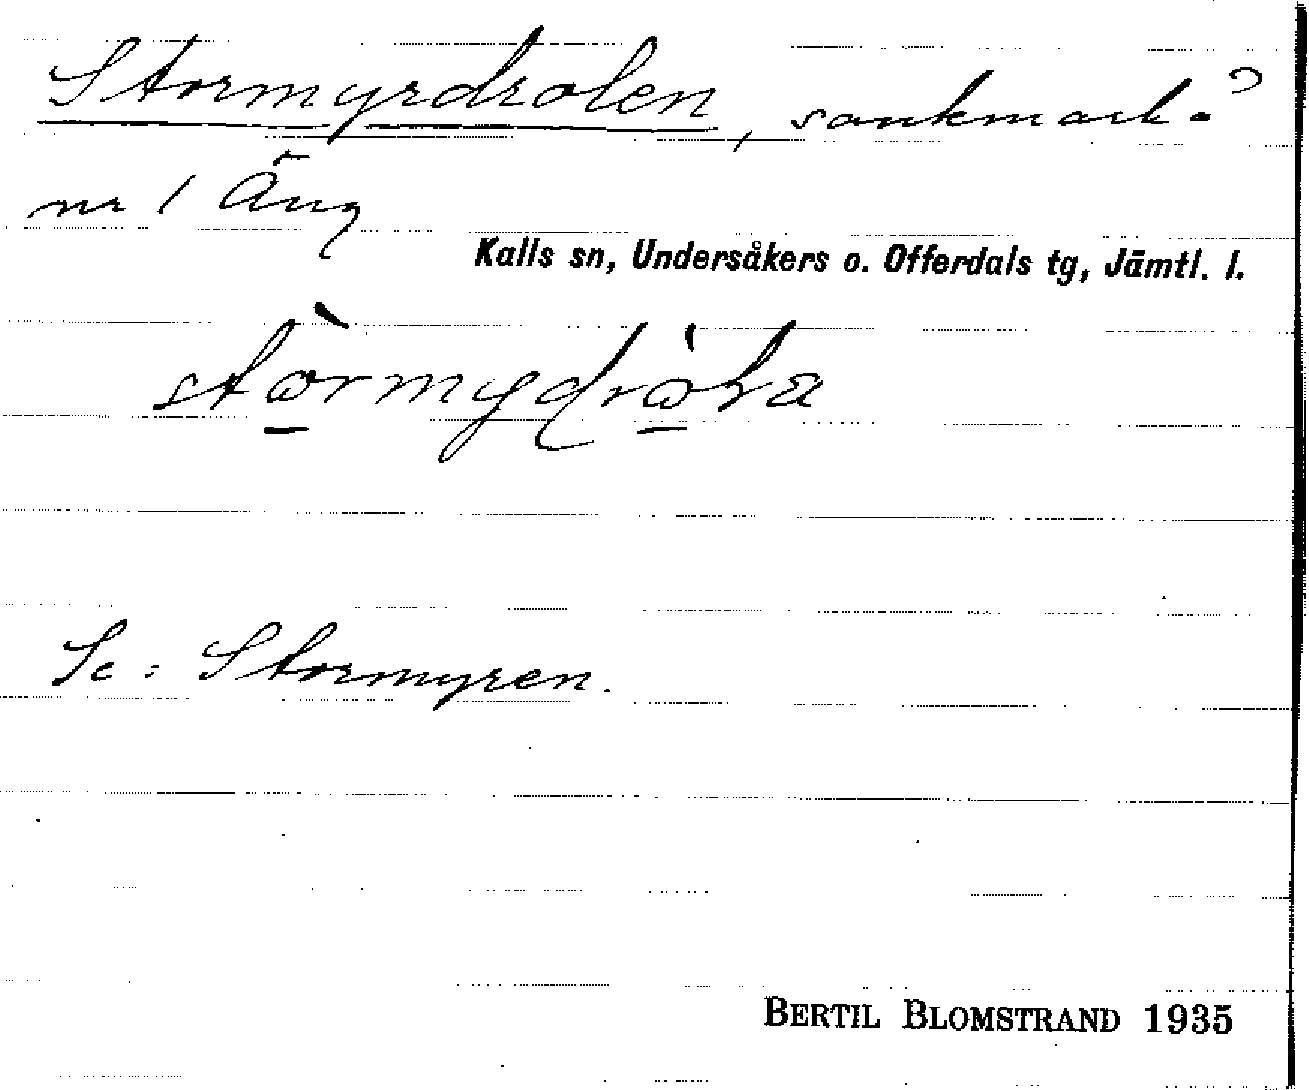 Stormyrdrolen, sankmark?
nr 1 Äng
Kalls sn, Undersåkers o. Offerdals tg, Jämtl. l.
Se: Stormyren.
BERTIL BLOMSTRAND 1935